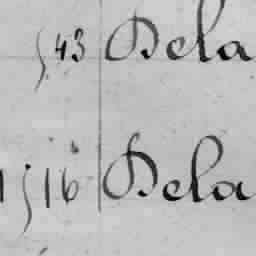 43 Dela
16 Dela